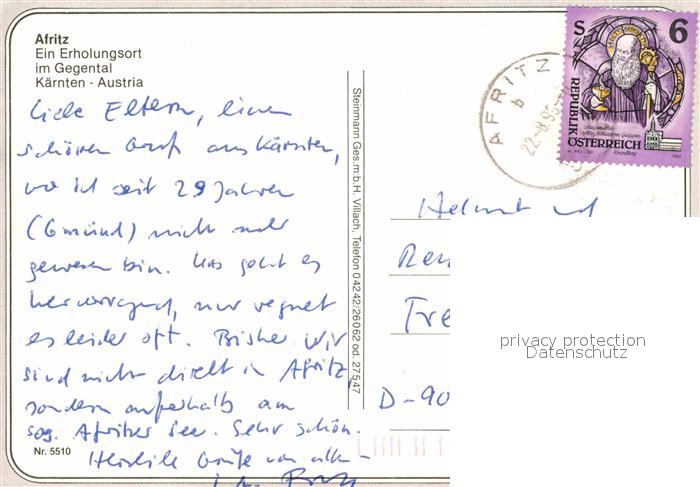 Afritz
Ein Erholungsort
im Gegental
Kärnten - Austria
Liebe Eltern, einen
schönen Gruß aus Kärnten,
wo ich seit 29 Jahren
(Gmünd) nicht mehr
gewesen bin. Uns geht es
hervorragend, nur regnet
es leider oft. Bisher. Wir
sind nicht direkt in Afritz,
sondern außerhalb am
sog. Afritzer See. Sehr schön.
Herzliche Grüße von allen
Nr. 5510
Steinmann Ges.m.b.H. Villach, Telefon 0 42 42/26 0 62 od. 27 5 47
AFRITZ
b
22.-8.95
S 6
REPUBLIK
ÖSTERREICH
1993
Helmut und
Ren
Fre
D-90
privacy protection
Datenschutz